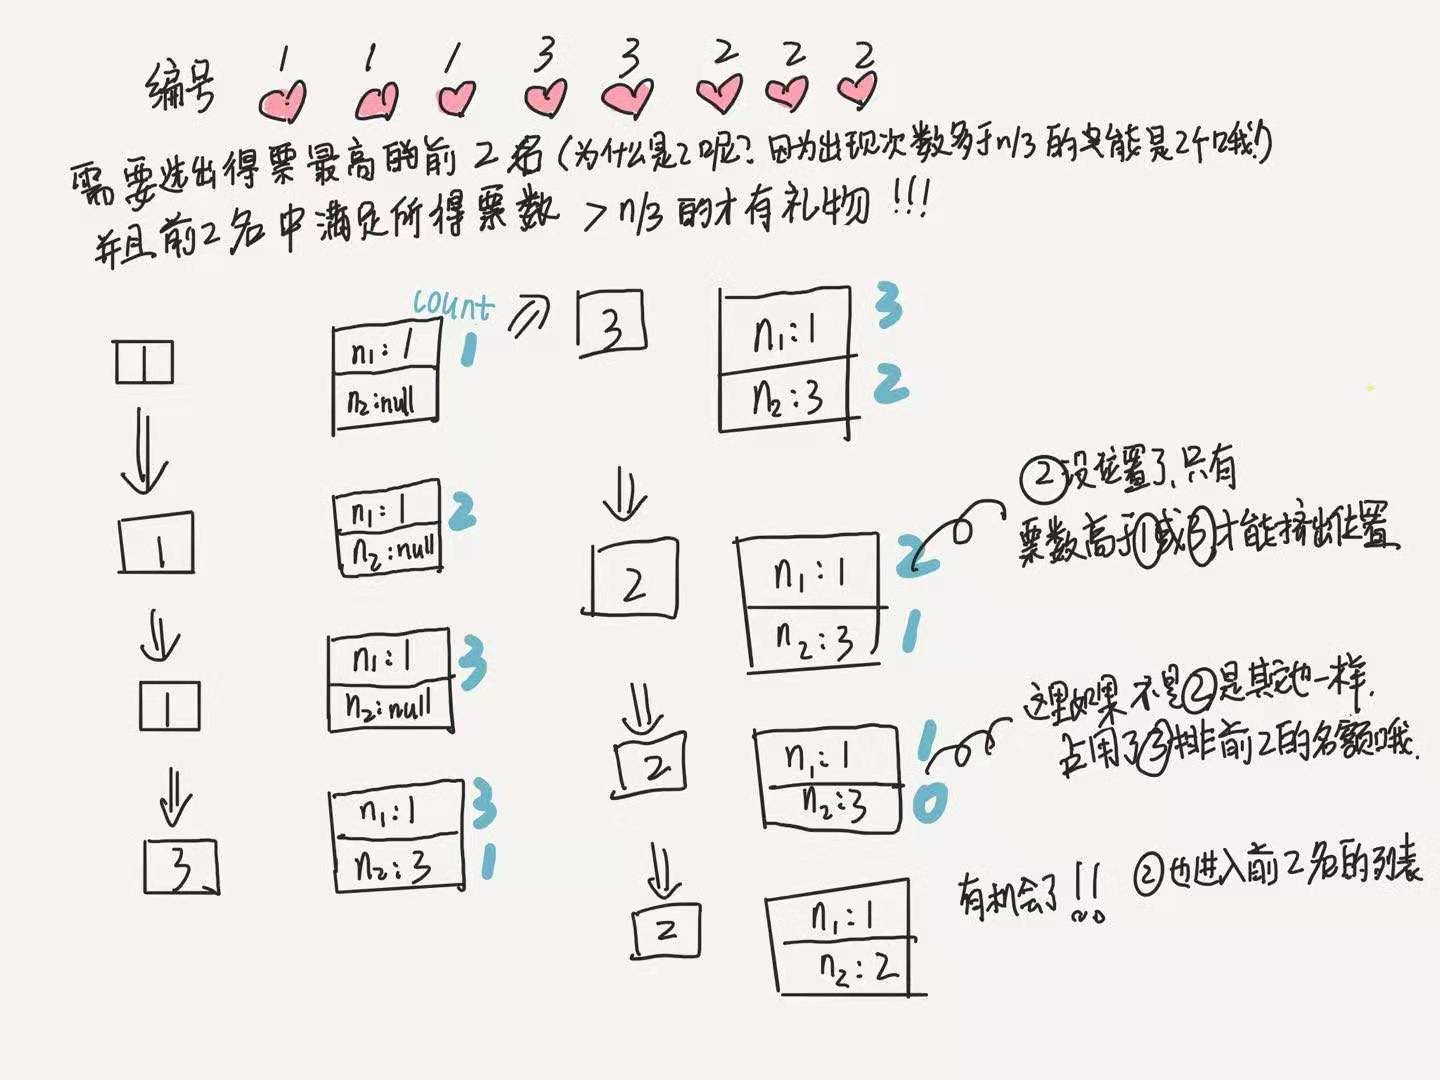 1 1 1 3 3 2 2 2
编号
需要选出得票最高的前2名(为什么是2呢?因为出现次数多于n/3的只能是2个哦!)
并且前2名中满足所得票数 >n/3的才有礼物!!!
count
1
n₁:1 1
n₂:null
1
n₁:1 2
n₂:null
1
n₁:1 3
n₂:null
3
n₁:1 3
n₂:3 1
3
n₁:1 3
n₂:3 2
2
n₁:1 2
n₂:3 1
②没位置了,只有
票数高于①或③才能挤出位置
2
n₁:1 1
n₂:3 0
这里如果不是②是其它也一样.
占用了③排前2的名额哦.
2
n₁:1
n₂:2
有机会了!! ②也进入前2名的列表